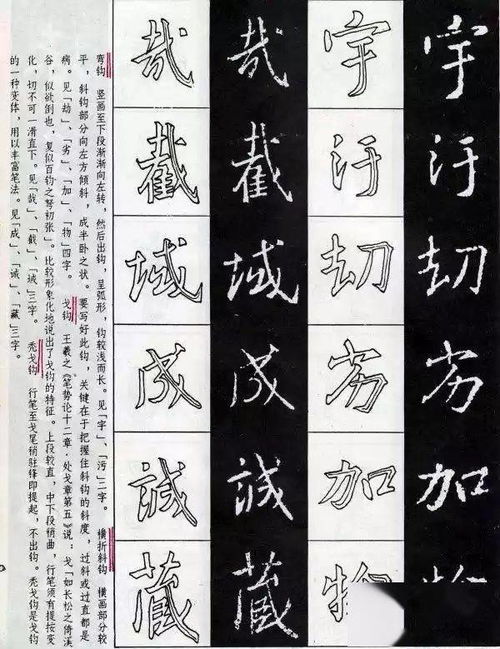 宇汙劫劣加物
宇汙劫劣加物
哉截域成誠藏
哉截域成誠藏
弯钩 竖画至下段渐渐向左转，然后出钩，呈弧形，钩较浅而长。见「宇」、「污」二字。 横折斜钩 横画部分较
平，斜钩部分向左方倾斜，成半卧之状。要写好此钩，关键在于把握住斜钩的斜度，过斜或过直都是
病。见「劫」、「劣」、「加」、「物」四字。 戈钩 王羲之《笔势论十二章·处戈章第五》说：戈「如长松之倚溪
谷，似欲倒也，复似百钧之弩初张」。比较形象化地说出了戈钩的特征。上段较直，中下段稍曲，行笔须有提按变
化，切不可一滑直下。见「哉」、「截」、「域」三字。 秃戈钩 行笔至戈尾稍驻锋即提起，不出钩。秃戈钩是戈钩
的一种变体，用以丰富笔法。见「成」、「诚」、「藏」三字。